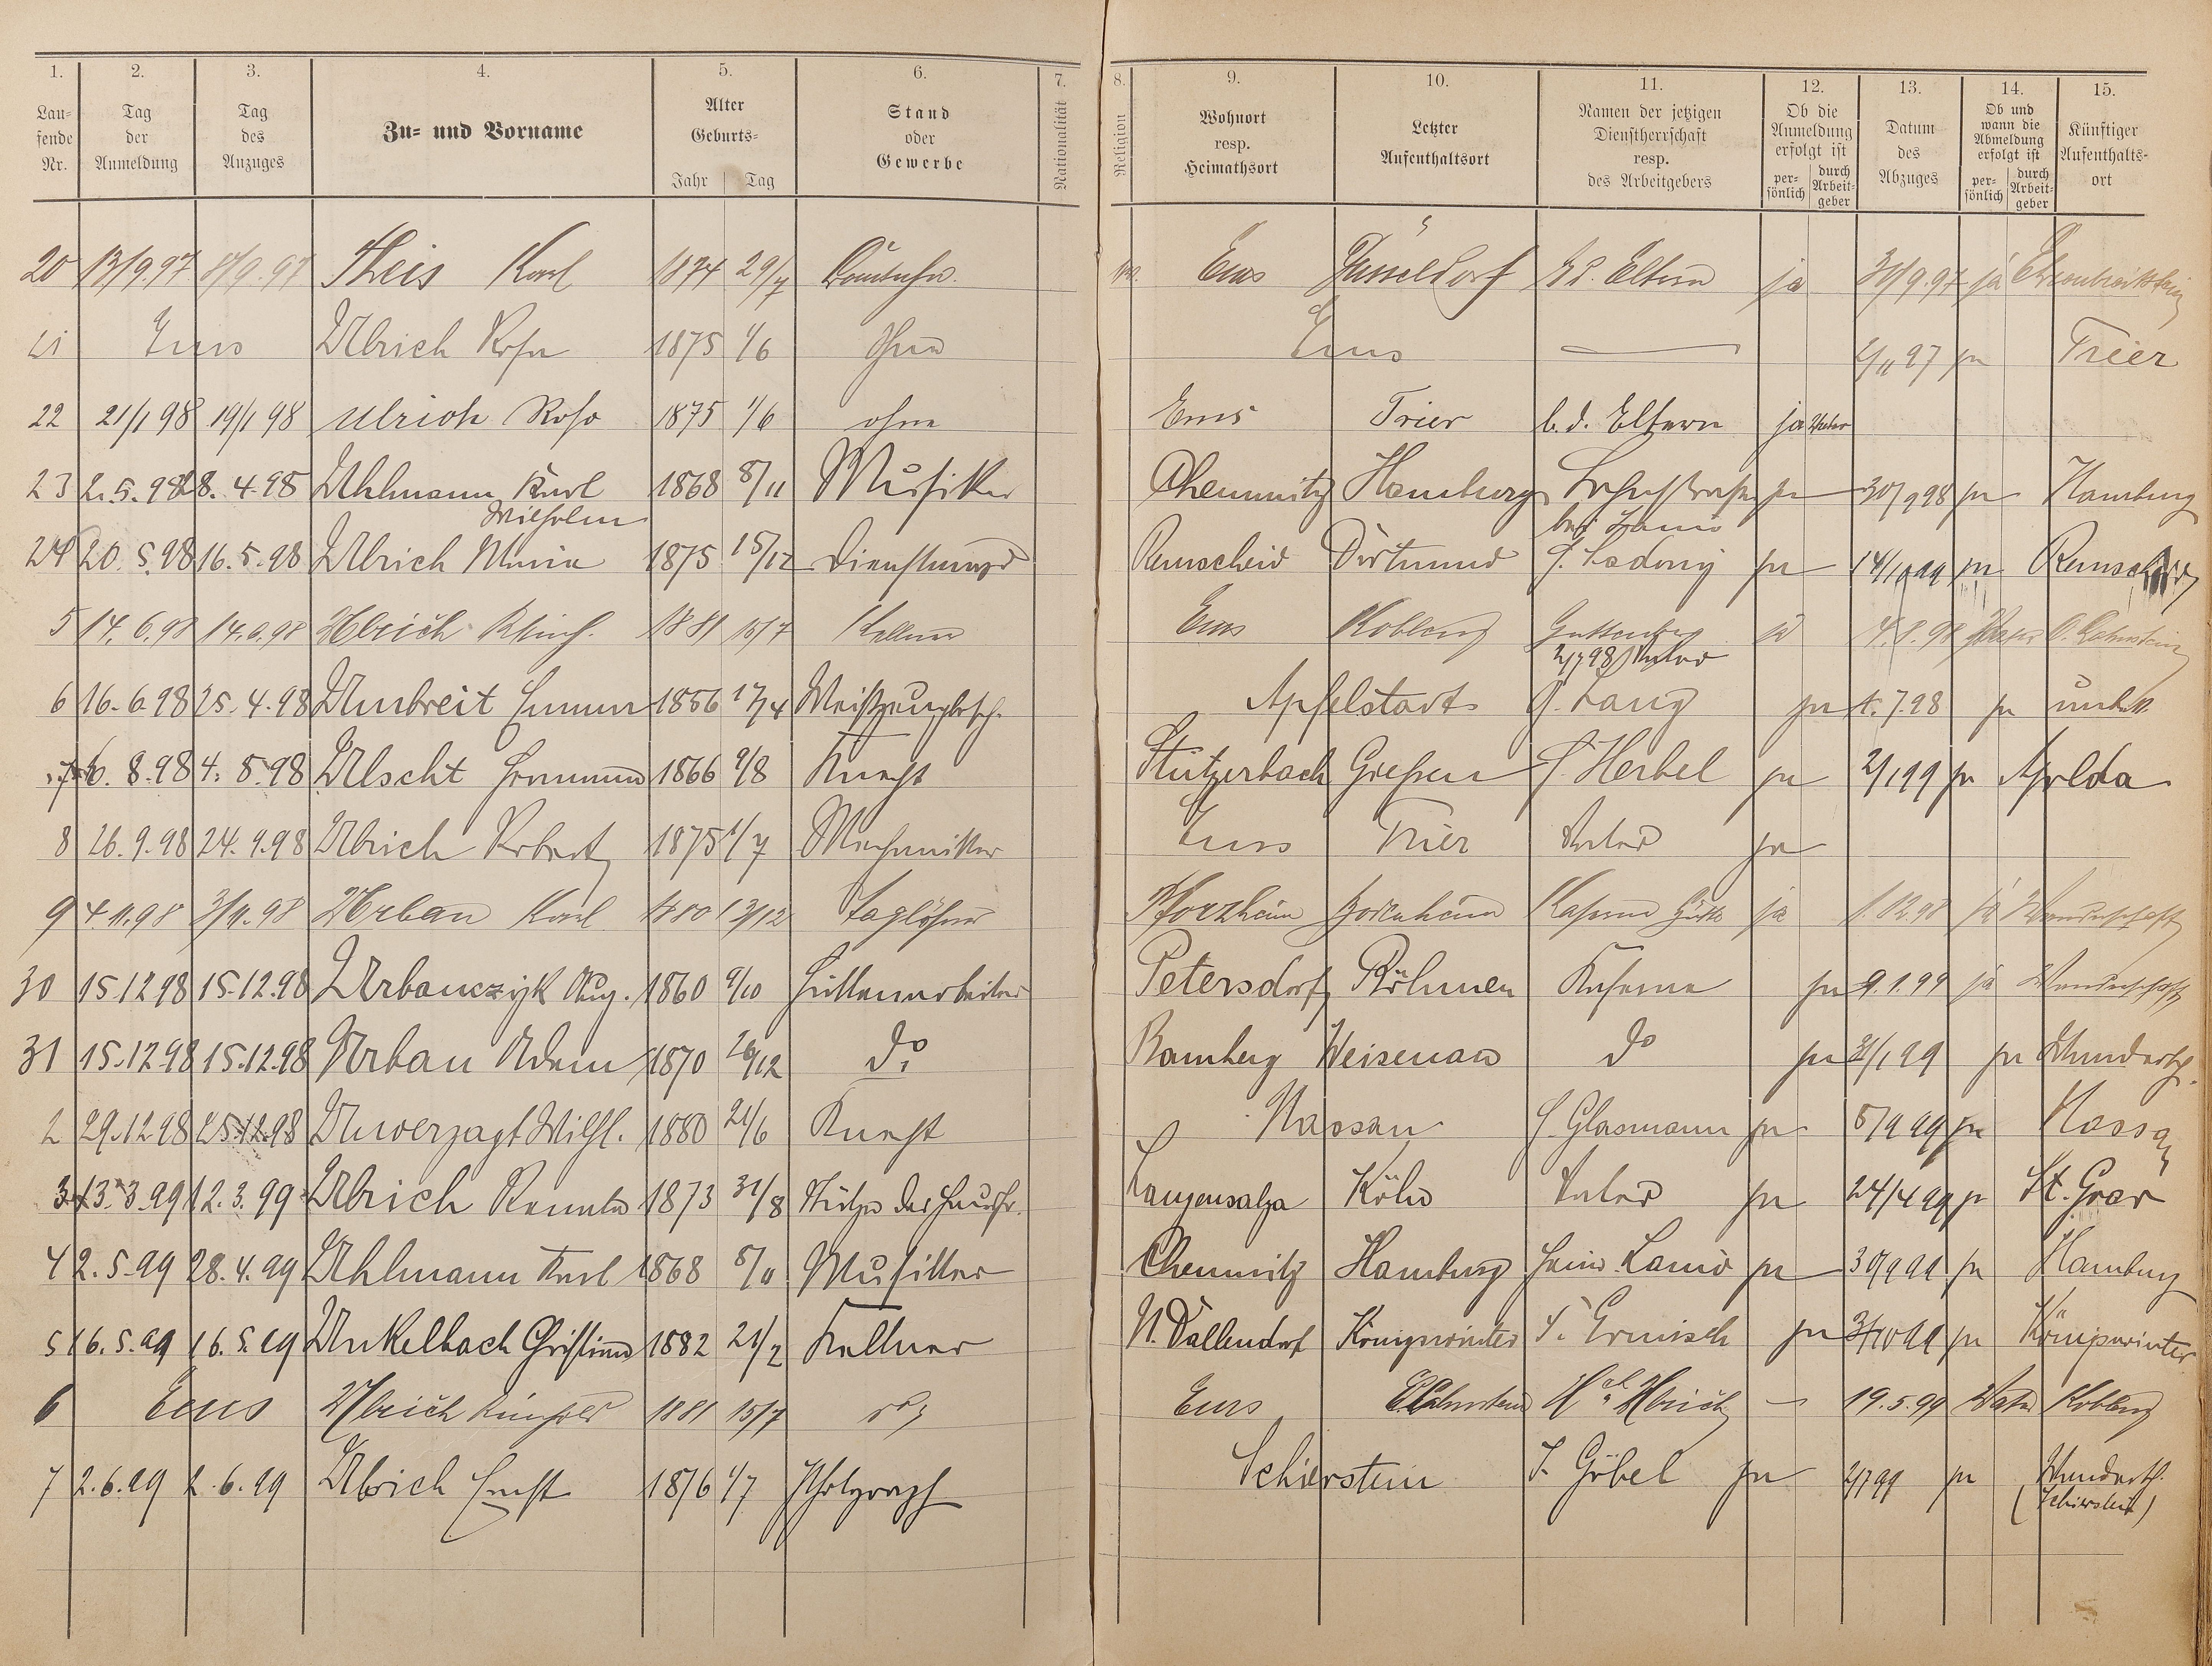 1. 2. 3. 4. 5. 6. 7. 8. 9. 10. 11. 12. 13. 14. 15.
Laufende Nr. Tag der Anmeldung Tag des Anzuges Zu- und Vorname Alter Geburts- Jahr Tag Stand oder Gewerbe Nationalität Religion Wohnort resp. Heimathsort Letzter Aufenthaltsort Namen der jetzigen Dienstherrschaft resp. des Arbeitgebers Ob die Anmeldung erfolgt ist persönlich durch Arbeitgeber Datum des Abzuges Ob und wann die Abmeldung erfolgt ist persönlich durch Arbeitgeber Künftiger Aufenthaltsort
20 13/9.97 Theis Karl 1874 29/7 Ems Düsseldorf Eltern ja 30/9.97 ja Ehrenbreitstein
21 Ems Ulrich Rosa 1875 1/6 Ohne Ems 97 ja Trier
22 21/1 98 19/1 98 Ulrich Rosa 1875 1/6 ohne Ems Trier b. d. Eltern ja Vater
23 2.5.98 28.4.98 Uhlmann Karl Wilhelm 1868 8/11 Musiker Chemnitz Hamburg bei ja 30/9 98 ja Hamburg
24 20.5.98 16.5.98 Ulrich Maria 1875 15/12 Dienstmagd Remscheid Dortmund ja ja Remscheid
5 14.6.98 14.6.98 Ulrich 1881 15/7 Kellner Ems Koblenz Guttenberg 2/7 98 Vater ja 4.8.98 Vater O. Lahnstein
6 16.6.98 25.4.98 Umbreit Emma 1856 17/4 Apfelstadt J. Lang ja 1.7.98 ja unbek.
7 6.8.98 4.8.98 Ulscht Hermann 1866 9/8 Knecht Stützerbach Giessen J. Herbel ja 2/1 99 ja Apolda
8 26.9.98 24.9.98 Ulrich Robert 1875 1/7 Mechaniker Ems Trier Vater ja
9 4.11.98 3/11.98 Urban Karl 1880 13/12 Taglöhner Pforzheim ja 1.12.98 ja Wanderschaft
30 15.12.98 15.12.98 Urbanczyk Aug. 1860 9/10 Hüttenarbeiter Petersdorf Böhmen Kaserne ja 9.1.99 ja Wanderschaft
31 15.12.98 15.12.98 Urban Adam 1870 26/12 do. Bamberg Weisenau do ja 2/1 99 ja Wandersch.
2 29.12.98 25.12.98 Unverzagt Wilh. 1880 21/6 Knecht Nassau J. Glasmann ja 5/9 99 ja Nassau
3 13.3.99 12.3.99 Ulrich Renata 1873 31/8 Stütze der Hausfr. Langensalza Köln Vater ja 24/4 99 ja St. Goar
4 2.5.99 28.4.99 Uhlmann Karl 1868 8/11 Musiker Chemnitz Hamburg ja 30/9 99 ja Hamburg
5 16.5.99 16.5.99 Unkelbach Christian 1882 21/2 Kellner N. Vallendorf Königswinter J. Ermisch ja ja Königswinter
6 Ems Ulrich 1881 15/7 Ems Ulrich – 19.5.99 Vater Koblenz
7 2.6.99 2.6.99 Ulrich Ernst 1876 1/7 Photograph Schierstein J. Göbel ja 99 ja Wandersch. (Schierstein)